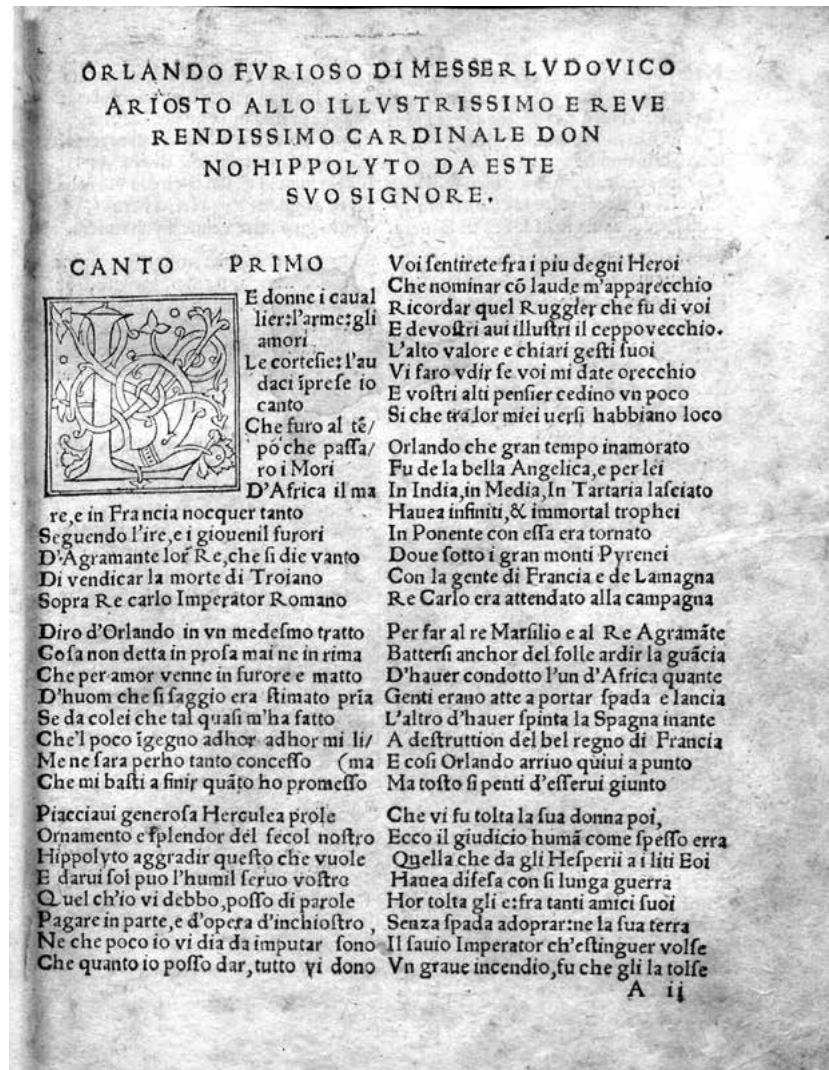 ORLANDO FVRIOSO DI MESSER LVDOVICO
ARIOSTO ALLO ILLVSTRISSIMO E REVE
RENDISSIMO CARDINALE DON
NO HIPPOLYTO DA ESTE
SVO SIGNORE.
CANTO PRIMO
LE donne i caual
lier:l'arme:gli
amori
Le corteſie: l'au
daci īpreſe io
canto
Che furo al tē/
po che paſſa/
ro i Mori
D'Africa il ma
re,e in Francia nocquer tanto
Seguendo l'ire,e i giouenil furori
D'Agramante lor Re,che ſi die vanto
Di vendicar la morte di Troiano
Sopra Re carlo Imperator Romano
Diro d'Orlando in vn medeſmo tratto
Coſa non detta in proſa mai ne in rima
Che per amor venne in furore e matto
D'huom che ſi ſaggio era ſtimato prīa
Se da colei che tal quaſi m'ha fatto
Che'l poco īgegno adhor adhor mi li/
Me ne ſara perho tanto conceſſo (ma
Che mi baſti a finir quāto ho promeſſo
Piacciaui generoſa Herculea prole
Ornamento e ſplendor del ſecol noſtro
Hippolyto aggradir queſto che vuole
E darui ſol puo l'humil ſeruo voſtro
Quel ch'io vi debbo,poſſo di parole
Pagare in parte,e d'opera d'inchioſtro,
Ne che poco io vi dia da imputar ſono
Che quanto io poſſo dar,tutto vi dono
Voi ſentirete fra i piu degni Heroi
Che nominar cō laude m'apparecchio
Ricordar quel Ruggier che fu di voi
E devoſtri aui illuſtri il ceppovecchio.
L'alto valore e chiari geſti ſuoi
Vi faro vdir ſe voi mi date orecchio
E voſtri alti penſier cedino vn poco
Si che tra lor miei uerſi habbiano loco
Orlando che gran tempo inamorato
Fu de la bella Angelica,e per lei
In India,in Media,In Tartaria laſciato
Hauea infiniti,& immortal trophei
In Ponente con eſſa era tornato
Doue ſotto i gran monti Pyrenei
Con la gente di Francia e de Lamagna
Re Carlo era attendato alla campagna
Per far al re Marſilio e al Re Agramāte
Batterſi anchor del folle ardir la guācia
D'hauer condotto l'un d'Africa quante
Genti erano atte a portar ſpada e lancia
L'altro d'hauer ſpinta la Spagna inante
A deſtruttion del bel regno di Francia
E coſi Orlando arriuo quiui a punto
Ma toſto ſi penti d'eſſerui giunto
Che vi fu tolta la ſua donna poi,
Ecco il giudicio humā come ſpeſſo erra
Quella che da gli Heſperii a i liti Eoi
Hauea difeſa con ſi lunga guerra
Hor tolta gli e:fra tanti amici ſuoi
Senza ſpada adoprar:ne la ſua terra
Il ſauio Imperator ch'eſtinguer volſe
Vn graue incendio,fu che gli la tolſe
A ii